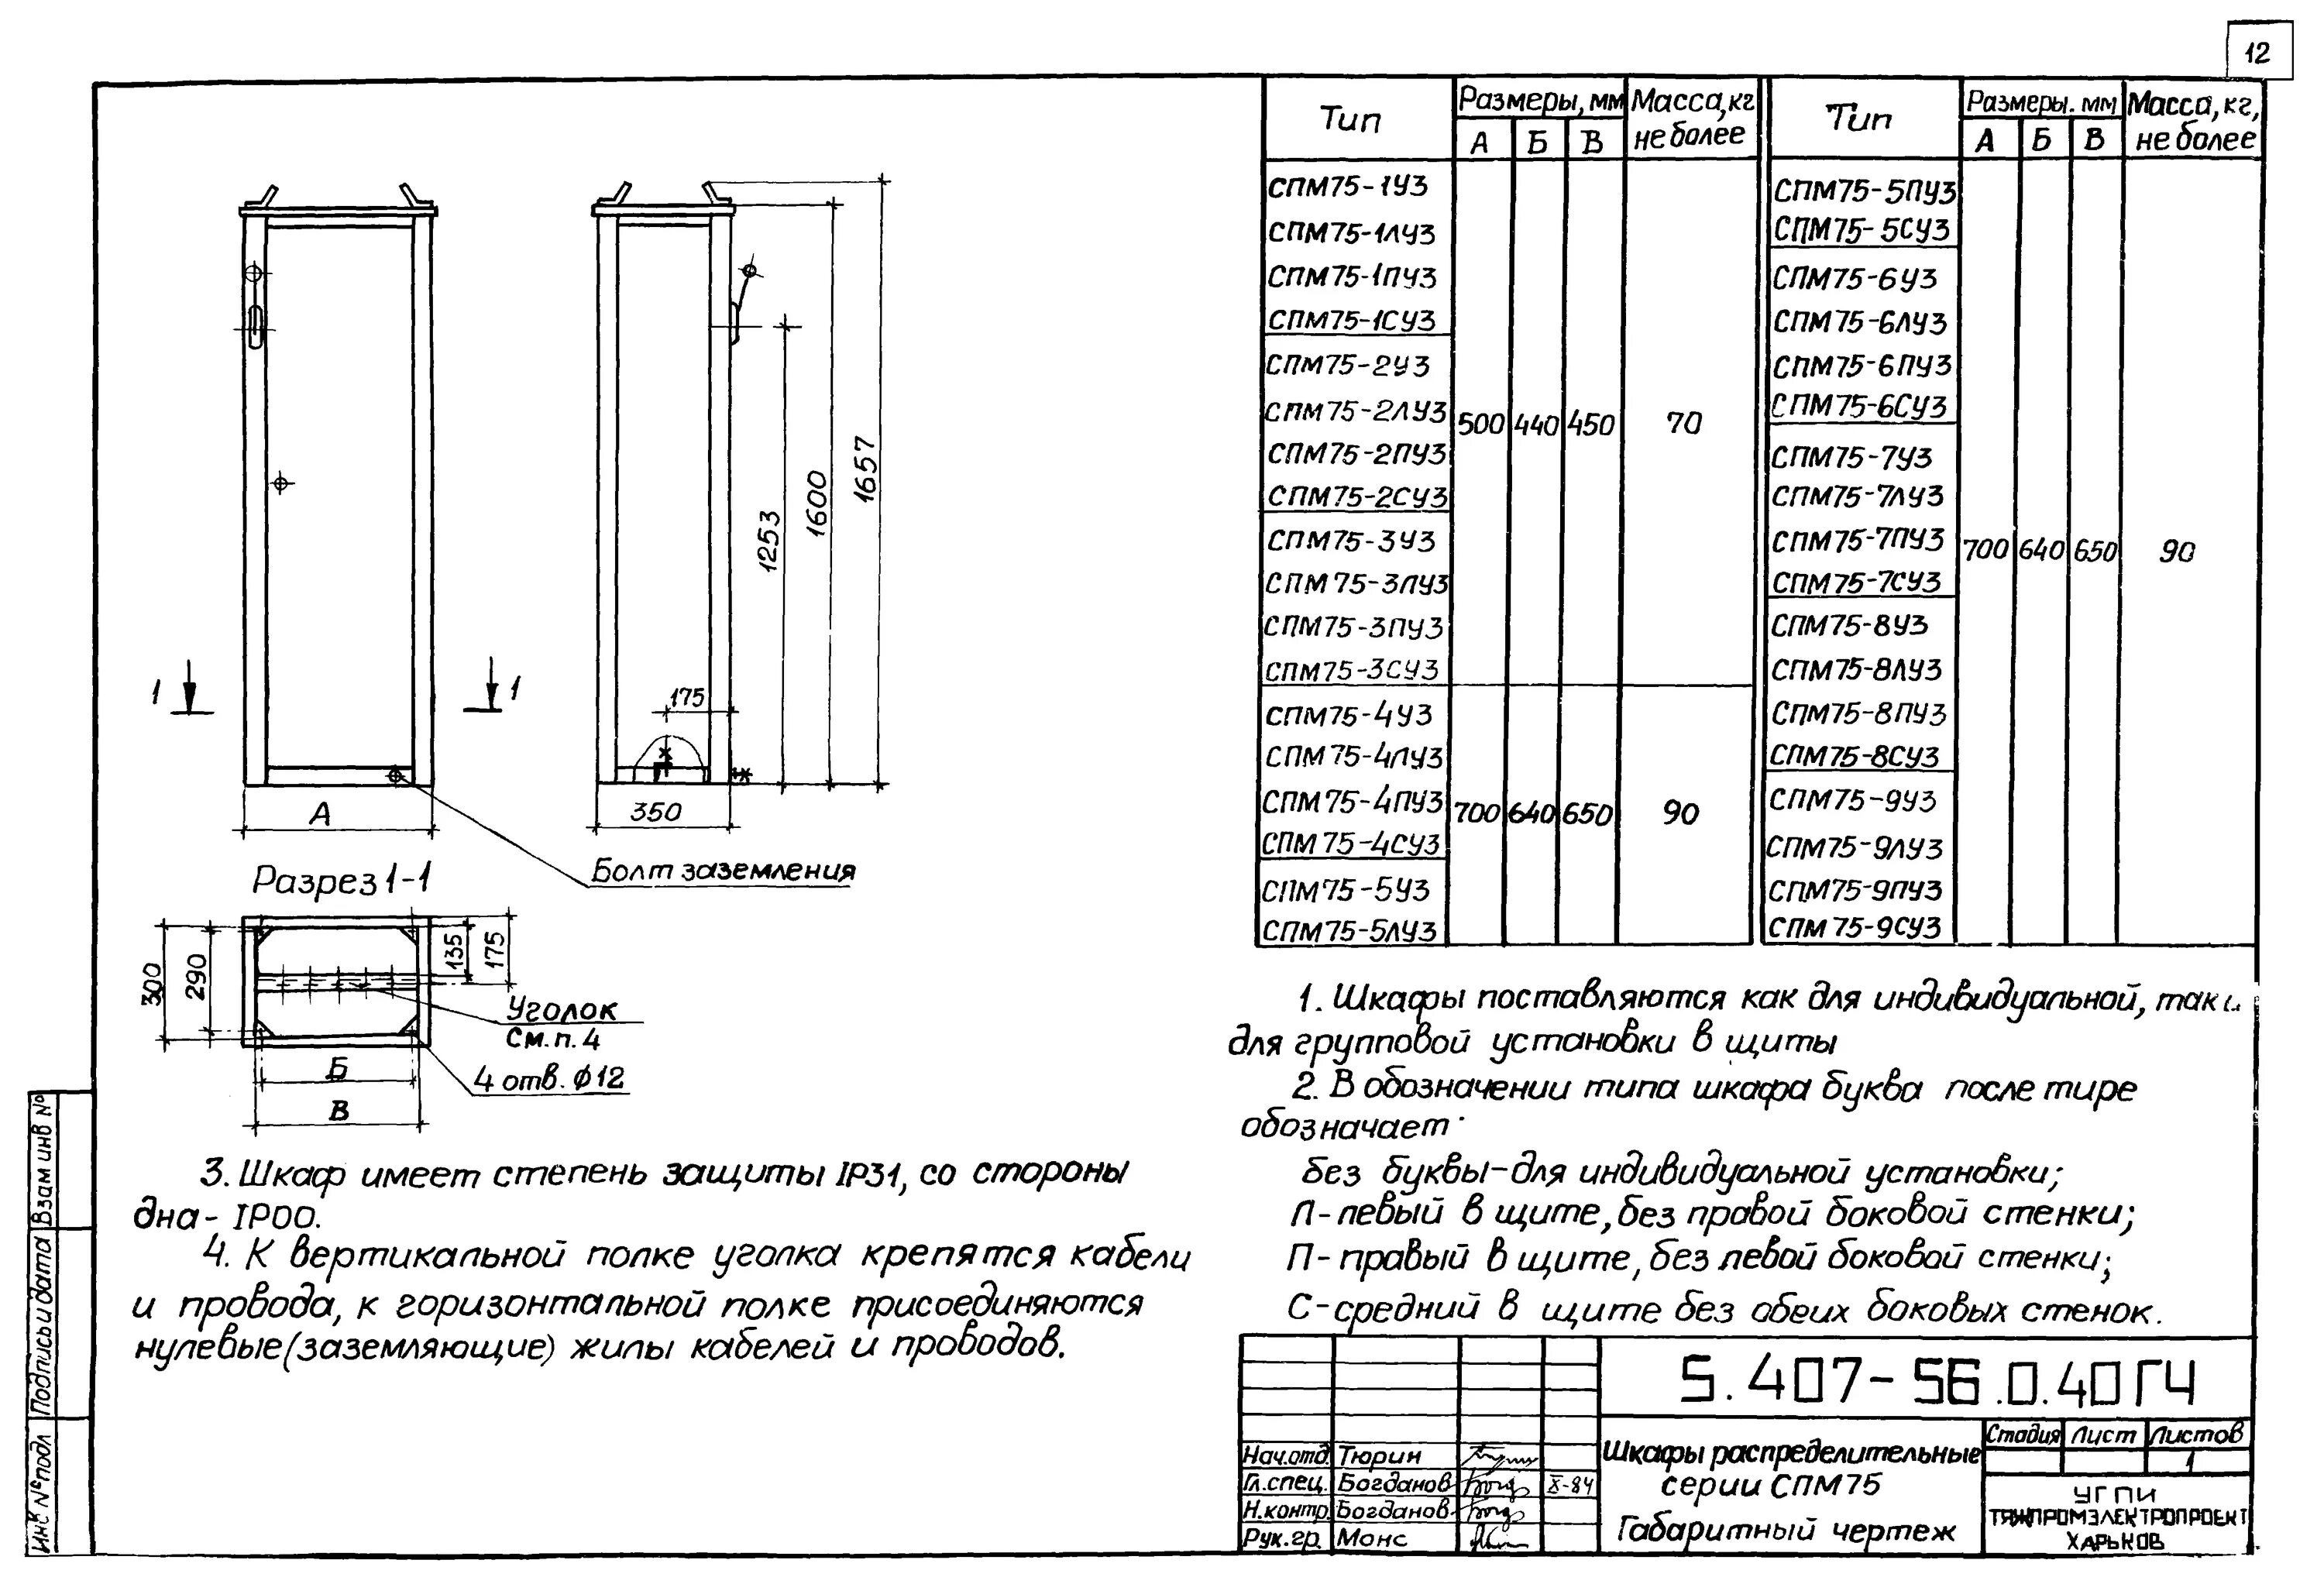 12
Тип
Размеры, мм
Масса, кг
не более
А Б В
СПМ75-1У3
СПМ75-1ЛУ3
СПМ75-1ПУ3
СПМ75-1СУ3
СПМ75-2У3
СПМ75-2ЛУ3
СПМ75-2ПУ3
СПМ75-2СУ3
СПМ75-3У3
СПМ75-3ЛУ3
СПМ75-3ПУ3
СПМ75-3СУ3
500 440 450 70
СПМ75-4У3
СПМ75-4ЛУ3
СПМ75-4ПУ3
СПМ75-4СУ3
СПМ75-5У3
СПМ75-5ЛУ3
700 640 650 90
Тип
Размеры. мм
Масса, кг,
не более
А Б В
СПМ75-5ПУ3
СПМ75-5СУ3
СПМ75-6У3
СПМ75-6ЛУ3
СПМ75-6ПУ3
СПМ75-6СУ3
СПМ75-7У3
СПМ75-7ЛУ3
СПМ75-7ПУ3
СПМ75-7СУ3
СПМ75-8У3
СПМ75-8ЛУ3
СПМ75-8ПУ3
СПМ75-8СУ3
СПМ75-9У3
СПМ75-9ЛУ3
СПМ75-9ПУ3
СПМ75-9СУ3
700 640 650 90
1657
1600
1253
175
350
1 1
А
Болт заземления
Разрез 1-1
300
290
135
175
Уголок
См. п. 4
4 отв. ϕ12
Б
В
1. Шкафы поставляются как для индивидуальной, так и
для групповой установки в щиты
2. В обозначении типа шкафа буква после тире
обозначает:
без буквы-для индивидуальной установки;
Л-левый в щите, без правой боковой стенки;
П-правый в щите, без левой боковой стенки;
С-средний в щите без обеих боковых стенок.
3. Шкаф имеет степень защиты IP31, со стороны
дна-IP00.
4. К вертикальной полке уголка крепятся кабели
и провода, к горизонтальной полке присоединяются
нулевые (заземляющие) жилы кабелей и проводов.
5.407-56.0.40ГЧ
Нач.отд. Тюрин
Гл.спец. Богданов X-84
Н.контр. Богданов
Рук.гр. Монс
Шкафы распределительные
серии СПМ75
Габаритный чертеж
Стадия Лист Листов
1
УГПИ
ТЯЖПРОМЭЛЕКТРОПРОЕКТ
ХАРЬКОВ
Взам инв №
Подпись и дата
Инв № подл